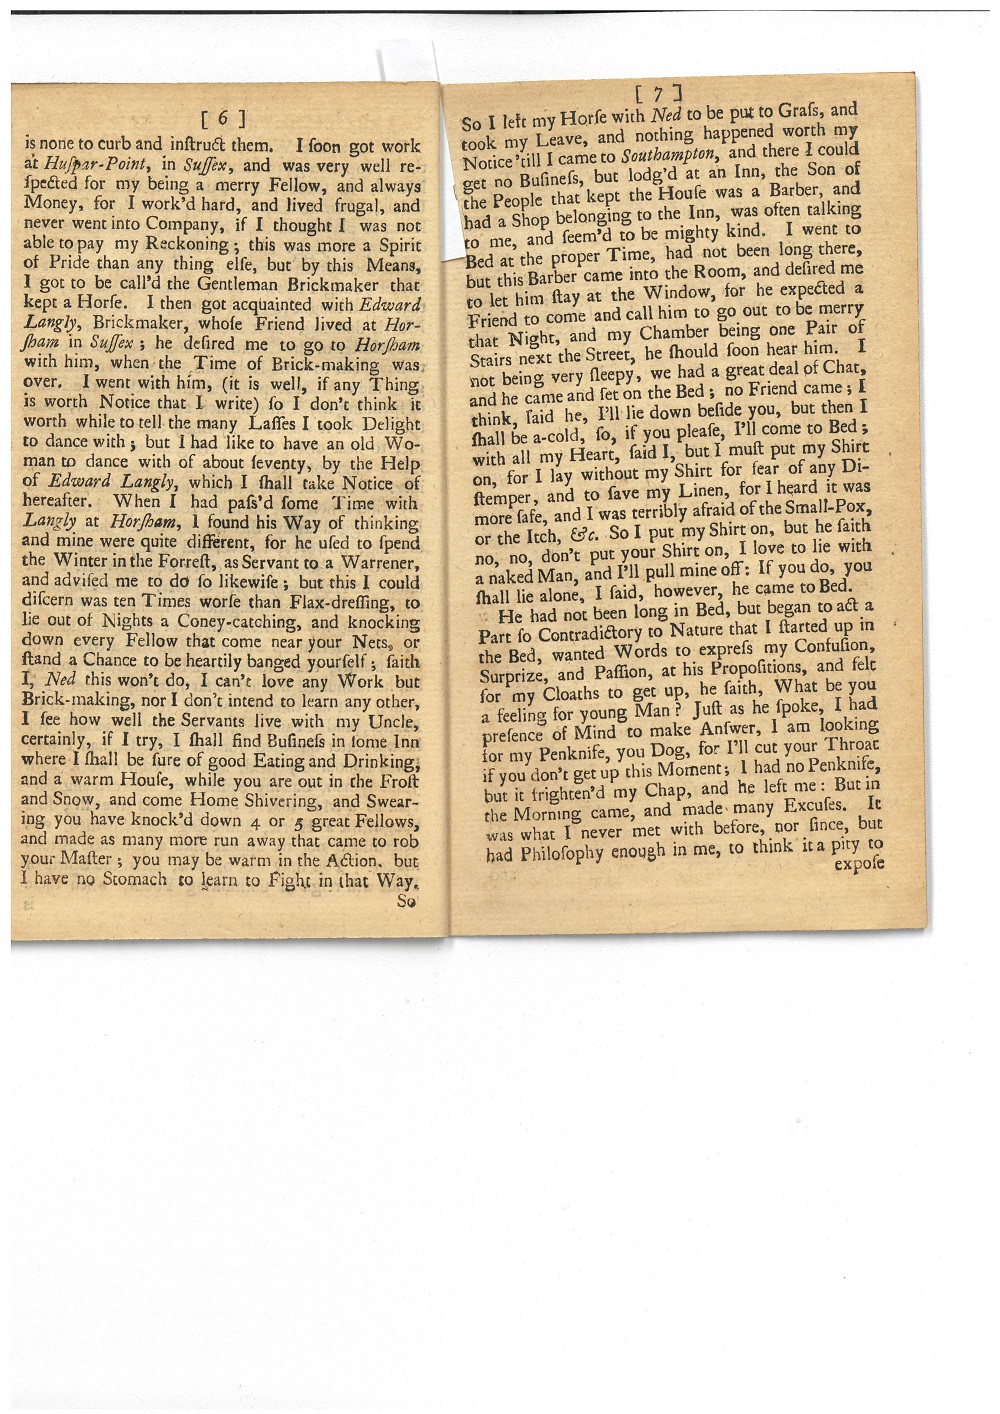 [ 6 ]
is none to curb and inſtruct them. I ſoon got work
at Huſpar-Point, in Suſſex, and was very well re-
ſpected for my being a merry Fellow, and always
Money, for I work'd hard, and lived frugal, and
never went into Company, if I thought I was not
able to pay my Reckoning; this was more a Spirit
of Pride than any thing elſe, but by this Means,
I got to be call'd the Gentleman Brickmaker that
kept a Horſe. I then got acquainted with Edward
Langly, Brickmaker, whoſe Friend lived at Hor-
ſham in Suſſex; he deſired me to go to Horſham
with him, when the Time of Brick-making was
over. I went with him, (it is well, if any Thing
is worth Notice that I write) ſo I don't think it
worth while to tell the many Laſſes I took Delight
to dance with; but I had like to have an old Wo-
man to dance with of about ſeventy, by the Help
of Edward Langly, which I ſhall take Notice of
hereafter. When I had paſs'd ſome Time with
Langly at Horſham, I found his Way of thinking
and mine were quite different, for he uſed to ſpend
the Winter in the Forreſt, as Servant to a Warrener,
and adviſed me to do ſo likewiſe; but this I could
diſcern was ten Times worſe than Flax-dreſſing, to
lie out of Nights a Coney-catching, and knocking
down every Fellow that come near your Nets, or
ſtand a Chance to be heartily banged yourſelf; ſaith
I, Ned this won't do, I can't love any Work but
Brick-making, nor I don't intend to learn any other,
I ſee how well the Servants live with my Uncle,
certainly, if I try, I ſhall find Buſineſs in ſome Inn
where I ſhall be ſure of good Eating and Drinking,
and a warm Houſe, while you are out in the Froſt
and Snow, and come Home Shivering, and Swear-
ing you have knock'd down 4 or 5 great Fellows,
and made as many more run away that came to rob
your Maſter; you may be warm in the Action, but
I have no Stomach to learn to Fight in that Way.
So
[ 7 ]
So I left my Horſe with Ned to be put to Graſs, and
took my Leave, and nothing happened worth my
Notice 'till I came to Southampton, and there I could
get no Buſineſs, but lodg'd at an Inn, the Son of
the People that kept the Houſe was a Barber, and
had a Shop belonging to the Inn, was often talking
to me, and ſeem'd to be mighty kind. I went to
Bed at the proper Time, had not been long there,
but this Barber came into the Room, and deſired me
to let him ſtay at the Window, for he expected a
Friend to come and call him to go out to be merry
that Night, and my Chamber being one Pair of
Stairs next the Street, he ſhould ſoon hear him. I
not being very ſleepy, we had a great deal of Chat,
and he came and ſet on the Bed; no Friend came; I
think, ſaid he, I'll lie down beſide you, but then I
ſhall be a-cold, ſo, if you pleaſe, I'll come to Bed;
with all my Heart, ſaid I, but I muſt put my Shirt
on, for I lay without my Shirt for fear of any Di-
ſtemper, and to ſave my Linen, for I heard it was
more ſafe, and I was terribly afraid of the Small-Pox,
or the Itch, &c. So I put my Shirt on, but he ſaith
no, no, don't put your Shirt on, I love to lie with
a naked Man, and I'll pull mine off: If you do, you
ſhall lie alone, I ſaid, however, he came to Bed.
He had not been long in Bed, but began to act a
Part ſo Contradictory to Nature that I ſtarted up in
the Bed, wanted Words to expreſs my Confuſion,
Surprize, and Paſſion, at his Propoſitions, and felt
for my Cloaths to get up, he ſaith, What be you
a feeling for young Man? Juſt as he ſpoke, I had
preſence of Mind to make Anſwer, I am looking
for my Penknife, you Dog, for I'll cut your Throat
if you don't get up this Moment; I had no Penknife,
but it frighten'd my Chap, and he left me: But in
the Morning came, and made many Excuſes. It
was what I never met with before, nor ſince, but
had Philoſophy enough in me, to think it a pity to
expoſe